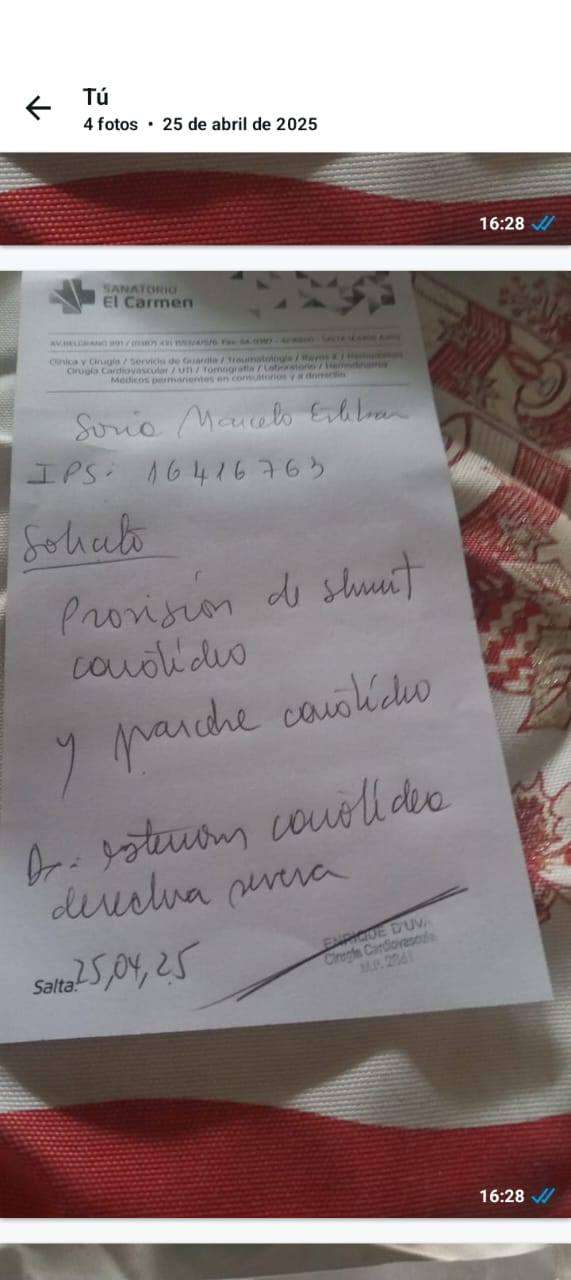 Tú
4 fotos • 25 de abril de 2025
16:28
SANATORIO
El Carmen
Clínica y Cirugía / Servicio de Guardia / Traumatología / Rayos X /
Cirugía Cardiovascular / UTI / Tomografía / Laboratorio / Hemodinamia
Médicos permanentes en consultorios y a domicilio
Soria Marcelo Esteban
IPS: 16416763
Solicito
Provisión de shunt
carotídeo
y parche carotídeo
Dx: estenosis carotídea
derecha severa
Salta: 25,04,25
ENRIQUE D'UVA
Cirugía Cardiovascular
M.P.
16:28